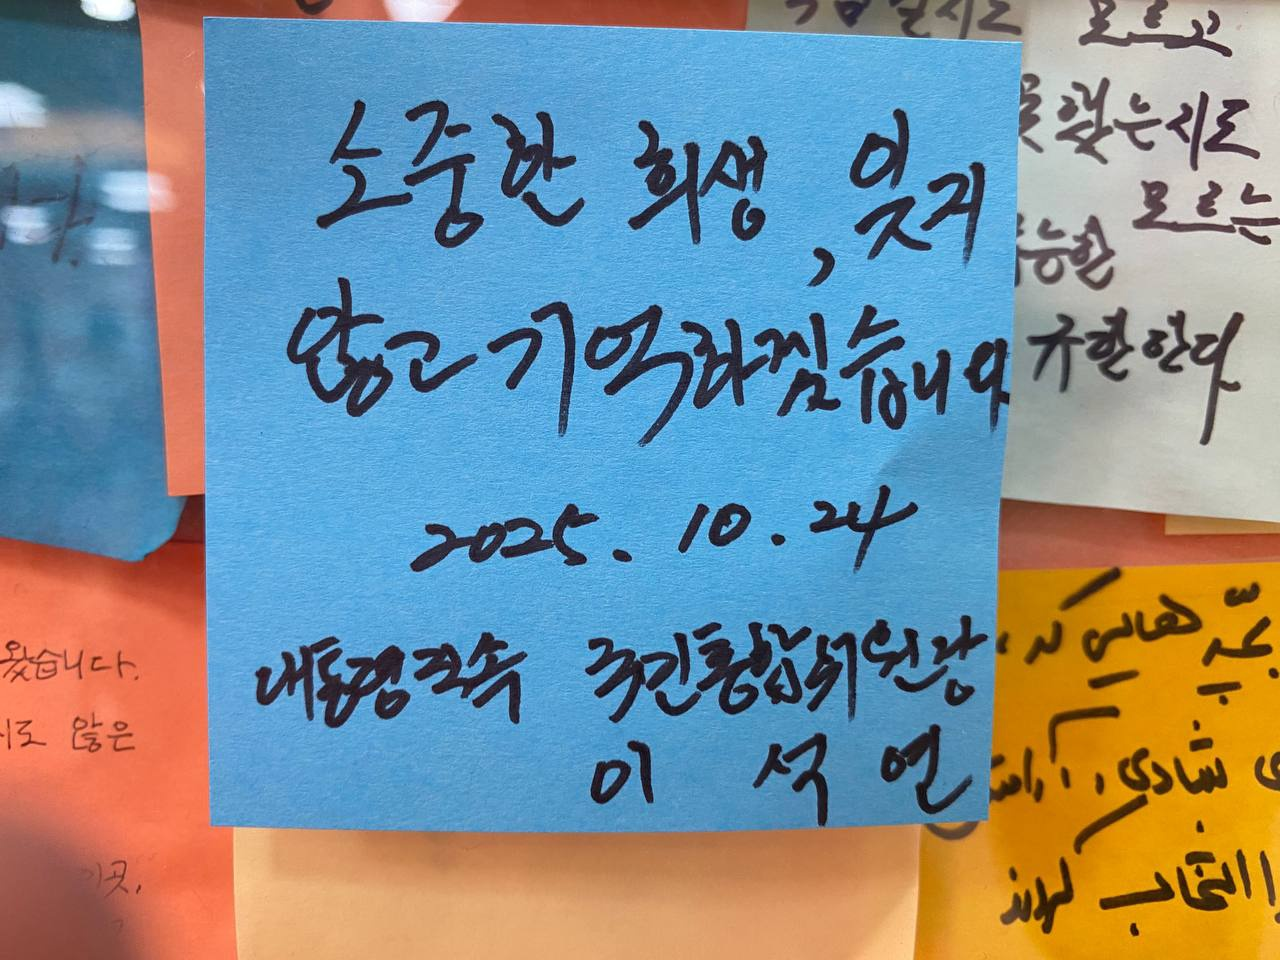 소중한 희생, 잊지
않고 기억하겠습니다
2025. 10. 24
대통령직속 국민통합위원장
이 석 연
모르고
못 했는지도
모르는
규탄한다
왔습니다.
지도 않은
이곳,
شادی،
انتخاب کردند